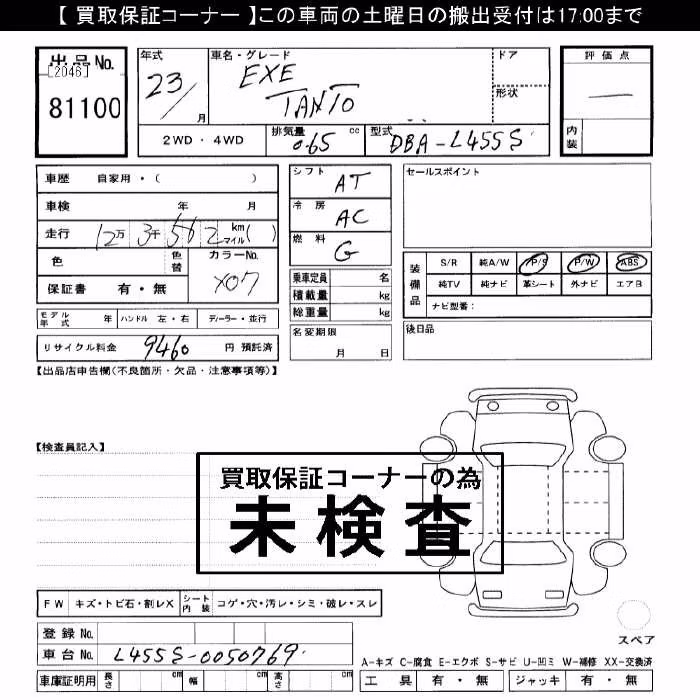 【 買取保証コーナー 】この車両の土曜日の搬出受付は17:00まで
出品No.
[2046]
81100
年式
23/
月
車名・グレード
EXE
TANTO
ドア
形状
評価点
—
内装
2WD・4WD
排気量 0.65 cc
型式 DBA-L455S
車歴 自家用・( )
車検 年 月
走行 12万 3千 5 6 2 km マイル( )
色
色替
カラーNo.
X07
保証書 有・無
シフト AT
冷房 AC
燃料 G
乗車定員 名
積載量 kg
総重量 kg
名変期限
月 日
セールスポイント
装備品
S/R 純A/W P/S P/W ABS
純TV 純ナビ 革シート 外ナビ エアB
ナビ型番:
後日品
モデル年式 年 ハンドル 左・右 ディーラー・並行
リサイクル料金 9460 円 預託済
【出品店申告欄(不良箇所・欠品・注意事項等)】
【検査員記入】
買取保証コーナーの為
未検査
FW キズ・トビ石・割レX シート内装 コゲ・穴・汚レ・シミ・破レ・スレ
登録No.
車台No. L455S-0050769
車庫証明用 長さ cm 幅 cm 高さ cm
スペア
A-キズ C-腐食 E-エクボ S-サビ U-凹ミ W-補修 XX-交換済
工具 有・無 ジャッキ 有・無